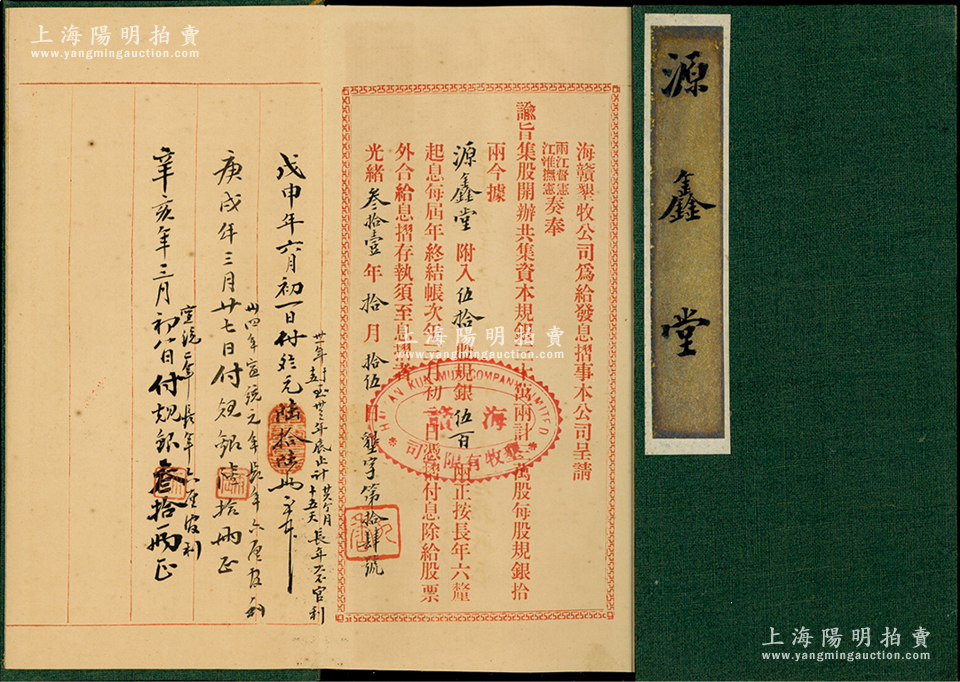 上海陽明拍賣
www.yangmingauction.com
源鑫堂
海贛墾牧公司爲給發息摺事本公司呈請
兩江督憲
江淮撫憲
奏奉
諭旨集股開辦共集資本規銀 萬兩計 萬股每股規銀拾
兩今據
源鑫堂附入伍拾股規銀伍百兩正按長年六釐
起息每屆年終結帳次年三月初 日憑摺付息除給股票
外合給息摺存執須至息摺者
光緒叁拾壹年拾月拾伍日 墾字第拾肆號
HAI GAN KUN MU COMPANY LIMITED
海贛
墾牧有限公司
卅一年 至卅三年底止計廿六個月
十五天長年六釐官利
戊申年六月初一日付 元陸拾陸
卅四年宣統元年長年六釐官利
庚戌年三月廿七日付規銀陸拾兩正
宣統二年長年六釐官利
辛亥年三月初八日付規銀叁拾兩正
上海陽明拍賣
www.yangmingauction.com
上海陽明拍賣
www.yangmingauction.com